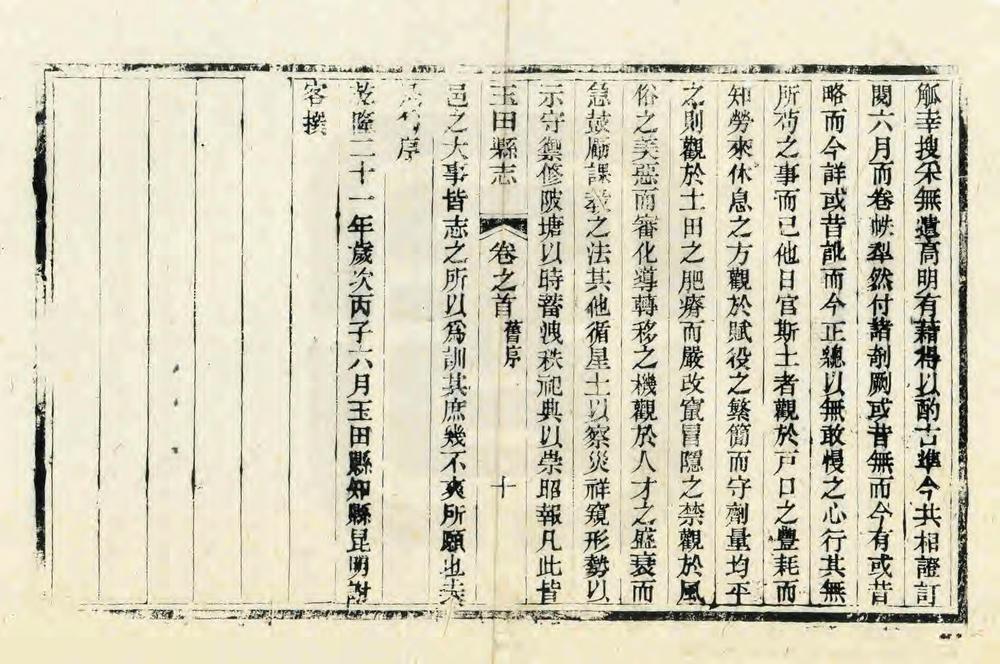 觚幸搜采無遺高明有藉得以酌古準今共相證訂
閱六月而卷帙犁然付諸剞劂或昔無而今有或昔
略而今詳或昔訛而今正總以無敢慢之心行其無
所苟之事而已他日官斯土者觀於戸口之豐耗而
知勞來休息之方觀於賦役之繁簡而守劑量均平
之則觀於土田之肥瘠而嚴改竄冒隱之禁觀於風
俗之美惡而審化導轉移之機觀於人才之盛衰而
急鼓勵課教之法其他循星土以察災祥窺形勢以
示守禦修陂塘以時蓄洩秩祀典以崇昭報凡此皆
玉田縣志 卷之首 舊序 十
邑之大事皆志之所以為訓其庶幾不爽所願也夫
序
乾隆二十一年歲次丙子六月玉田縣知縣昆明謝
客撰